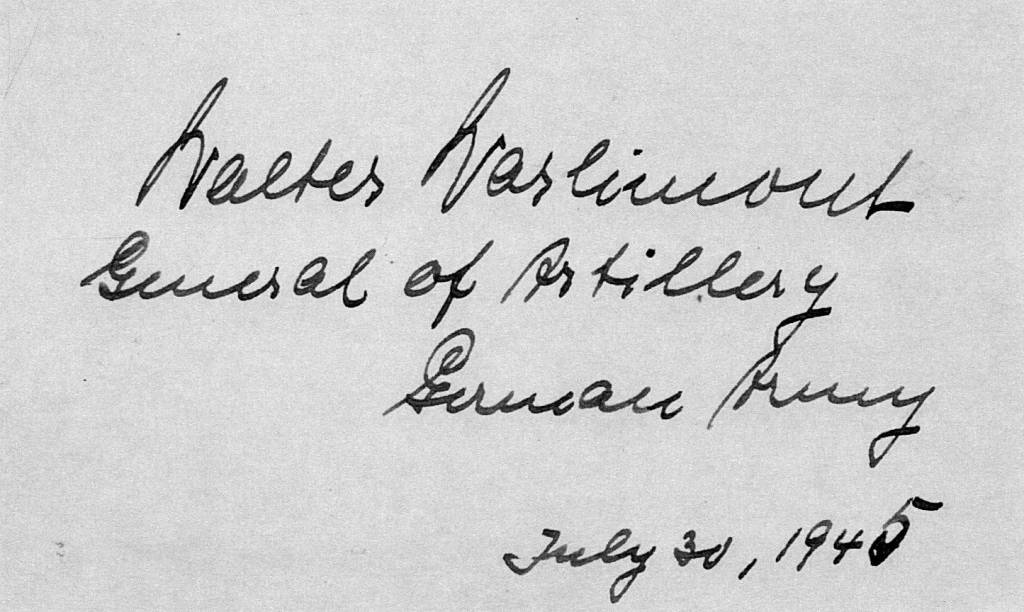 Walter Warlimont
General of Artillery
German Army
July 30, 1945